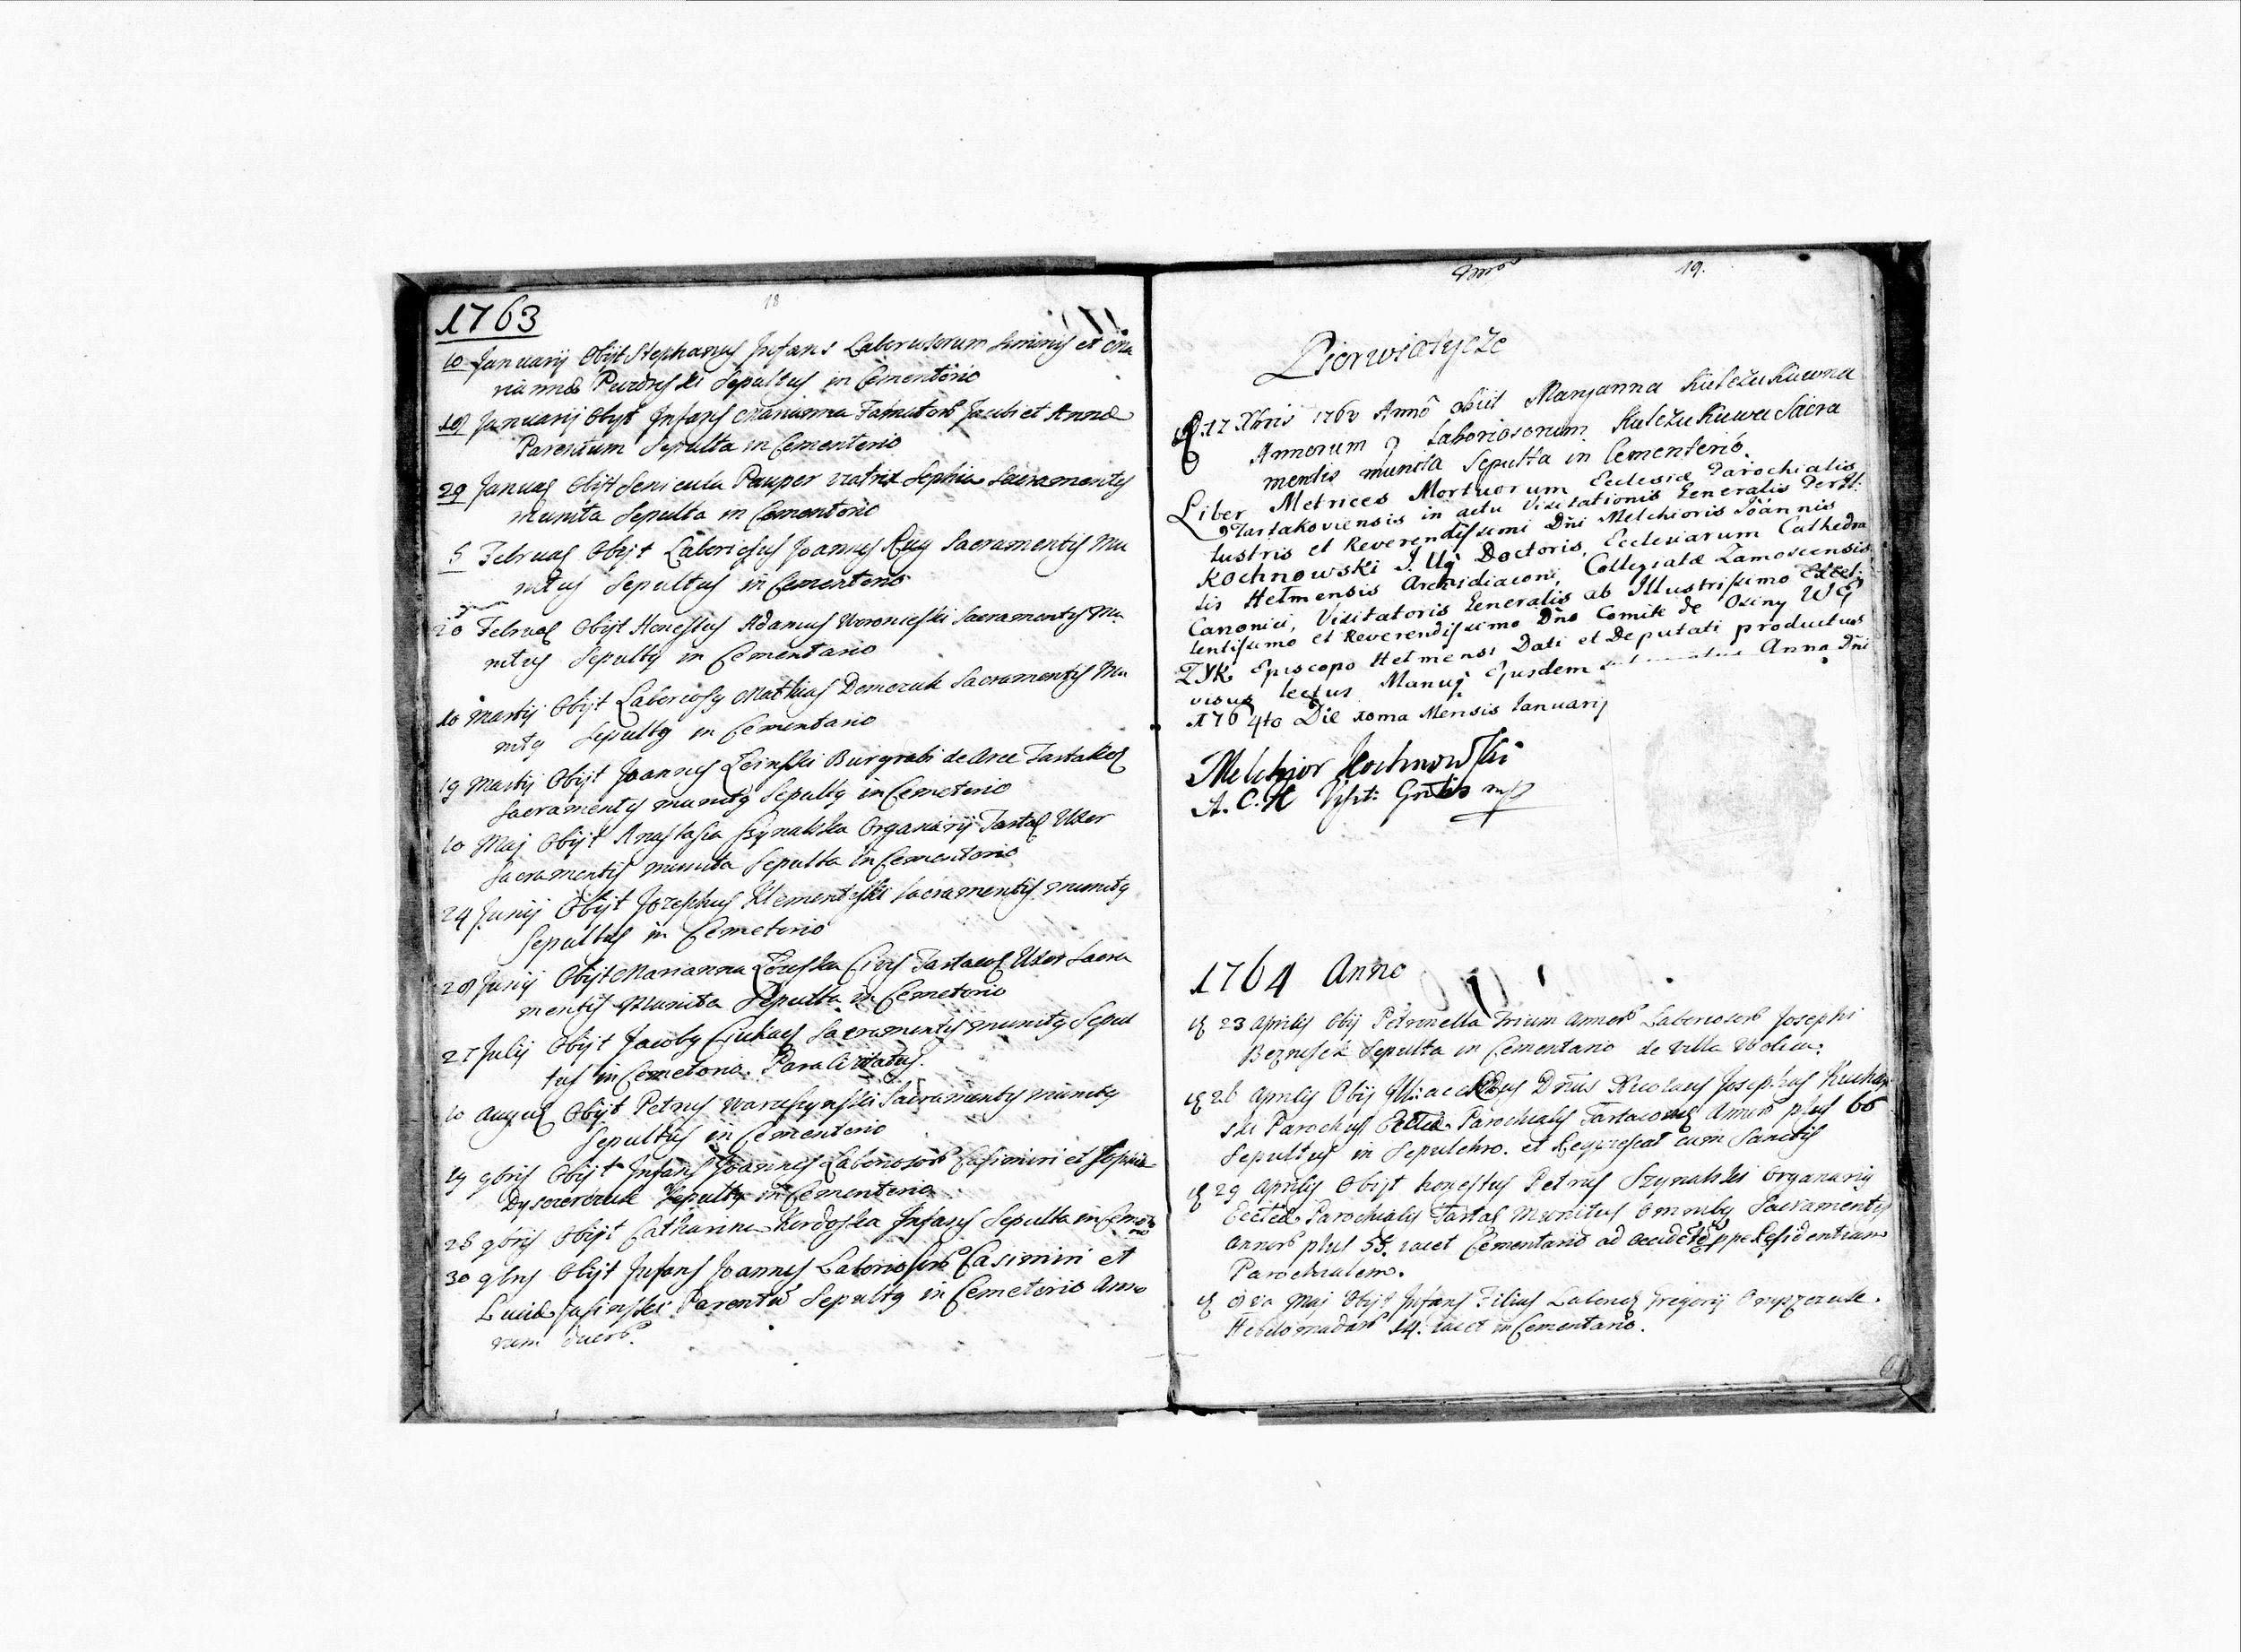 18
1763
10 Januarij Obijt Stephanus Infans Laboriosorum Simonis et Ma
rianna Sepultus in Cementerio
18 Januarij Obijt Infans Marianna Famatorũ Jacobi et Anna
Parentum Sepulta in Cementerio
29 Januar Obijt Senicula Pauper Sophia Sacramentis
munita Sepulta in Cementerio
5 Februar Obijt Laboriosus Joannes Sacramentis Mu
nitus Sepultus in Cementerio
20 Februar Obijt Honestus Adamus Woronieski Sacramentis Mu
nitus Sepultus in Cementario
10 Martij Obijt Laboriosus Mathias Demczuk Sacramentis Mu
nitus Sepultus in Cementario
19 Martij Obijt Joannes Burgrabi de Arce Tartakov
Sacramentis munitus Sepultus in Cemeterio
10 Maj Obijt Anastasia Szynalska Organarij Tartak Uxor
Sacramentis munita Sepulta in Cementerio
24 Junij Obijt Josephus Klementeski Sacramentis munitus
Sepultus in Cemeterio
28 Junij Obijt Marianna Civis Tartacov Uxor Sacra
mentis Munita Sepulta in Cemeterio
27 Julij Obijt Jacobus Sacramentis munitus Sepul
tus in Cemeterio.
10 August Obijt Petrus Sacramentis munitus
Sepultus in Cementerio
19 9bris Obijt Infans Joannes Laboriosorũ Casimiri et Sophia
Sepultus in Cementerio
28 9bris Obijt Catharina Infans Sepulta in Cemete
rio
30 9bris Obijt Infans Joannes Laboriosorũ Casimiri et
Parentũ Sepultus in Cemeterio Anno
rum duorũ.
19.
Pierwiatycze
17 Xbris 1763 Annô Obiit Maryanna Kulczukuwna
Annorum 9 Laboriosorum Kulczukuwu Sacra
mentis munita Sepulta in Cementeriô.
Liber Metrices Mortuorum Ecclesiæ Parochialis
Tartakoviensis in actu Visitationis Generalis Peril:
lustris et Reverendissimi Dñi Melchioris Joannis
Kochnowski J. U. Doctoris, Ecclesiarum Cathedra
lis Hełmensis Archidiaconi, Collegiatæ Zamoscensis
Canonici, Visitatoris Generalis ab Illustrissimo Excel:
lentissimo et Reverendissimo Dño Comite de Osiny
Episcopo Hełmensi Dati et Deputati productus
visus lectus Manu Ejusdem Anno Dñi
1764to Die 10ma Mensis Januarij
Melchjor Kochnowski
A. C. H Visit: Gnlis mp
1764 Anno
23 Aprilis Obij Petronella trium Annorũ Laboriosorũ Josephi
Sepulta in Cementario de Villa Wolica:
26 Aprilis Obij Dñus Nicolaus Josephus
ski Parochus Eccliæ Parochialis Annorũ plus 66
Sepultus in Sepulchro. et Requiescat cum Sanctis
29 Aprilis Obijt honestus Petrus Szynalski Organarius
Eccliæ Parochialis Tartak Munitus Omnibus Sacramentis
Annorũ plus 55. iacet Cementario ad prope Residentiam
Parochialem.
8va Maj Obijt Infans Filius Labori Gregorij
Hebdomadarũ 14. iacet in Cementario.